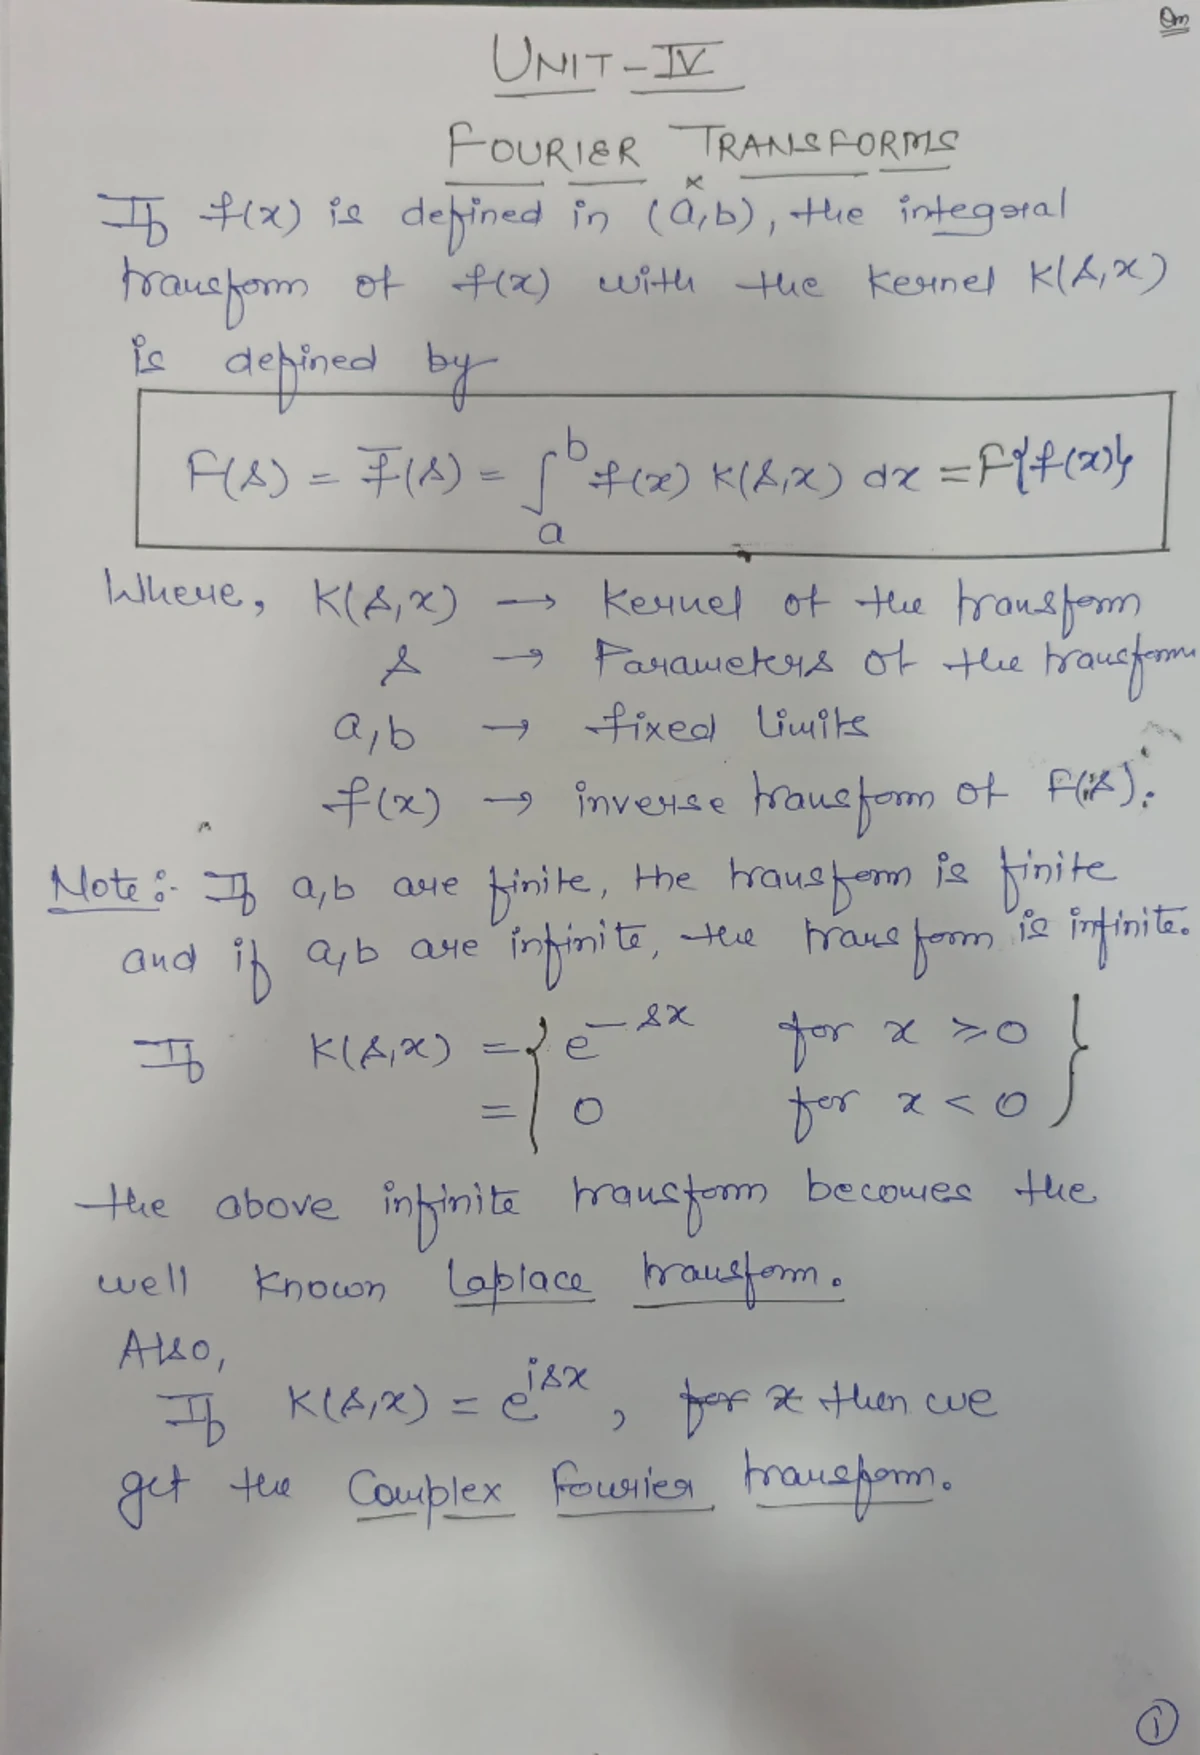 Om
UNIT-IV
FOURIER TRANSFORMS
If f(x) is defined in (a,b), the integral
transform of f(x) with the kernel K(s,x)
is defined by
F(s) = f̅(s) = ∫ₐᵇ f(x) K(s,x) dx = F{f(x)}
Where, K(s,x) → Kernel of the transform
s → Parameters of the transform
a,b → fixed limits
f(x) → inverse transform of F(s).
Note:- If a,b are finite, the transform is finite
and if a,b are infinite, the transform is infinite.
If K(s,x) = { e^{-sx} for x ≥ 0 }
= { 0 for x < 0 }
the above infinite transform becomes the
well known Laplace transform.
Also,
If K(s,x) = e^{isx}, for x then we
get the Complex Fourier transform.
1